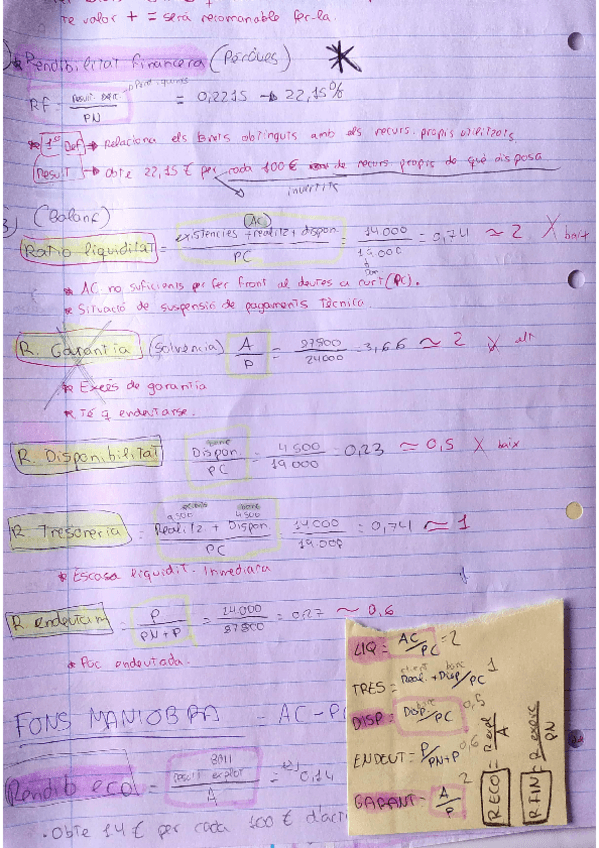 te valor + = serà recomanable fer-la.
* Rendibilitat financera (Pèrdues) *
RF = Result. exerc / PN = 0,2215 → 22,15%
* 1er Def → Relaciona els Bnfis obtinguts amb els recurs. propis utilitzats
Result → obté 22,15 € per cada 100 € de recurs propis de què disposa
invertits
3) (Balanç)
Ratio liquiditat = existències + realitz + dispon (AC) / PC = 14000 / 19.000 = 0,74 ≈ 2 X baix
* AC no suficients per fer front al deutes a curt (PC).
* Situació de suspensió de pagaments tècnica.
R. Garantia (Solvència) A / P = 87800 / 24000 = 3,66 ≈ 2 X alt
* Excés de garantia
* Té q endeutarse.
R. Disponibilitat banc Dispon. / PC = 4500 / 19.000 = 0,23 ≈ 0,5 X baix
R Tresoreria = 9500 4500 Realitz + Dispon / PC = 14000 / 19.000 = 0,74 ≈ 1
* Escasa liquidit. Inmediata
R endeutam = P / PN+P = 24.000 / 87800 = 0,27 ≈ 0,6
* Poc endeutada.
FONS MANIOBRA = AC - P
Rendib eco = BAII result explot / A = 0,14
· Obté 14 € per cada 100 € d'acti
LIQ = AC/PC = 2
TRES = client banc Real. + Disp/PC 1
DISP = banc Disp./PC 0,5
ENDEUT = P/PN+P 0,6
GARANT = A/P 2
RECO = R expl / A
R FIN = R exerc / PN